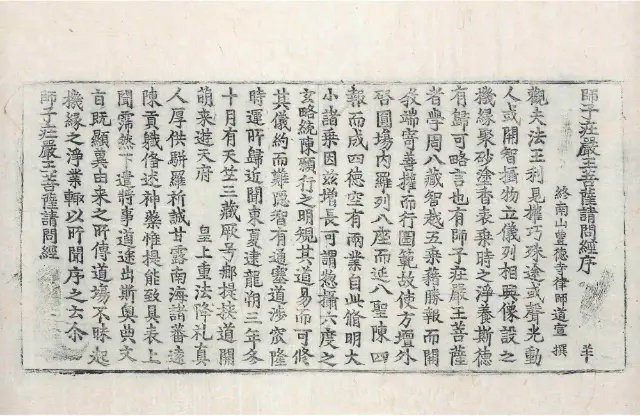 師子莊嚴王菩薩請問經序 羊
終南山豐德寺律師道宣 撰
觀夫法王利見權巧殊途或聲光動
人或開智攝物立儀列相興像設之
機緣聚砂塗香表乘時之淨養斯德
有歸可略言也有師子莊嚴王菩薩
者學周八藏智越五乘藉勝報而開
教端寄善權而行圖範故使方壇外
啓圓場內羅列八座而延八聖陳四
報而成四德空有兩業自此脩明大
小諸乘因茲增長可謂惣攝六度之
玄略統陳願行之明規其道易而可修
其儀約而難隱智有通塞道涉窊隆
時運所歸近聞東夏逮龍朔三年冬
十月有天竺三藏厥号那提挾道開
萌來遊天府 皇上重法降礼真
人厚供駢羅祈誠甘露南海諸蕃遠
陳貢職俻述神藥惟提能致具表上
聞霈然下遣將事道途出斯奧典文
旨既顯冀由來之所傳道場不昧起
機緣之淨業輒以所聞序之云尒
師子莊嚴王菩薩請問經